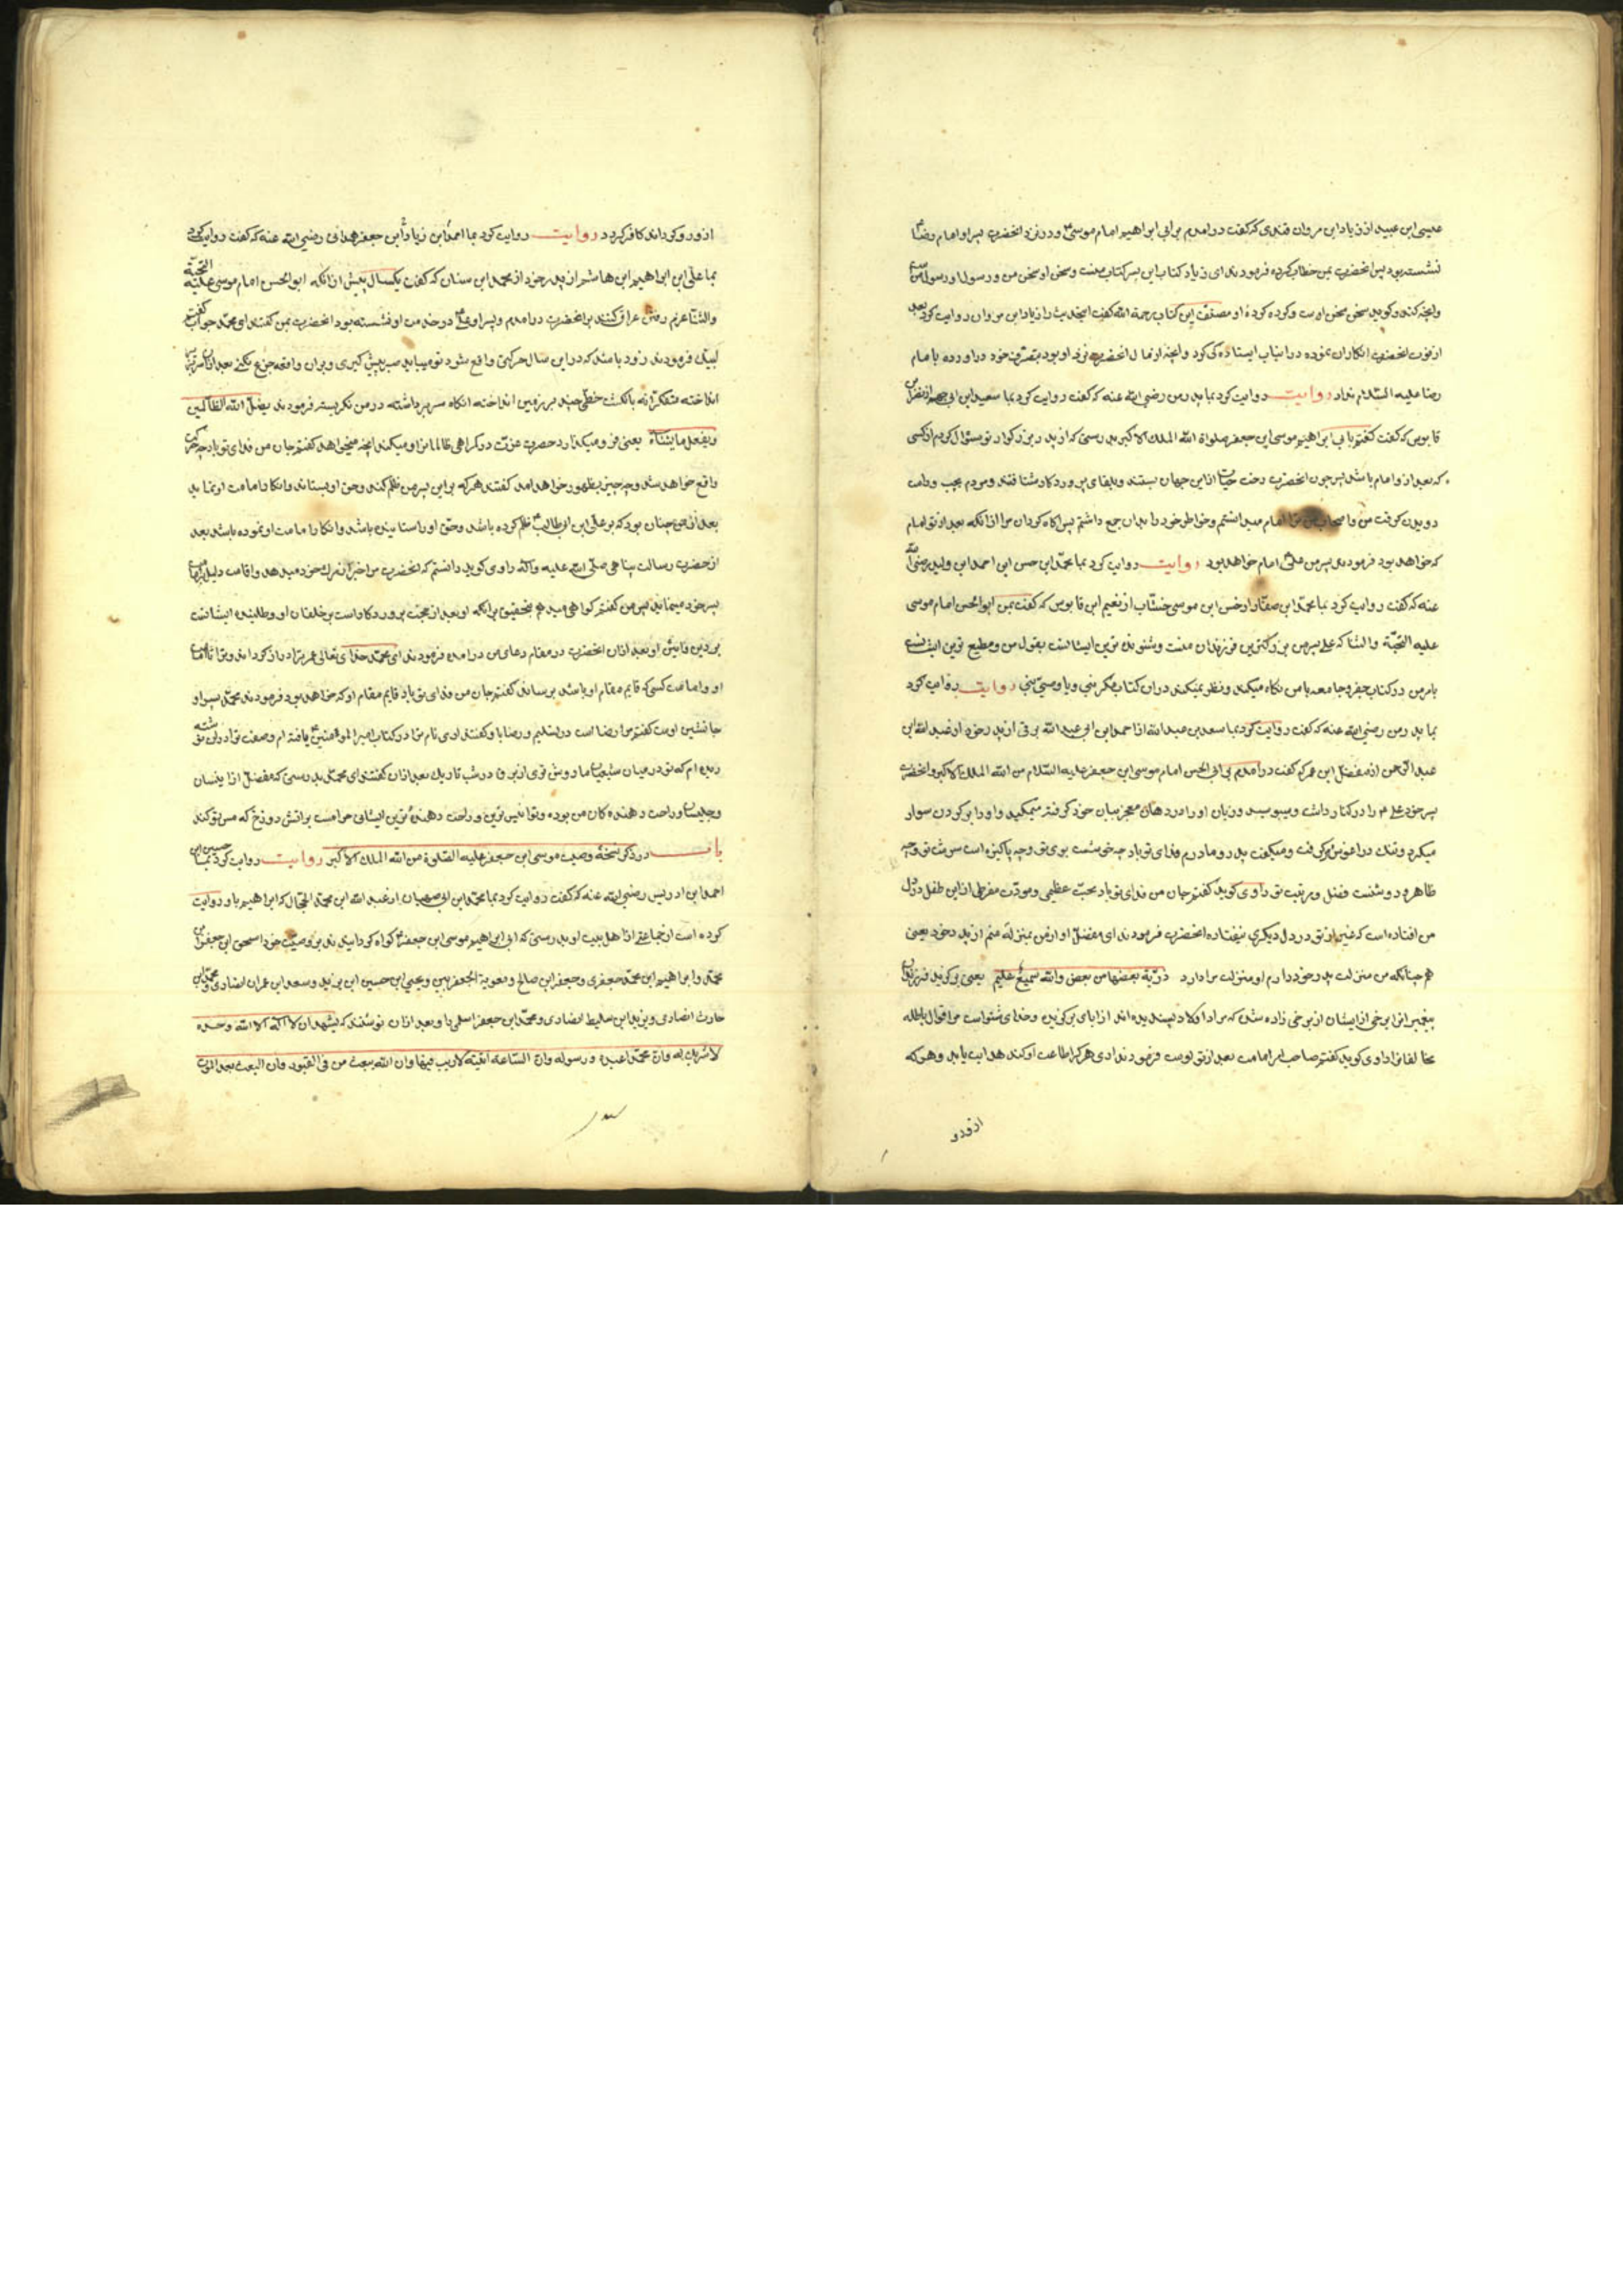 عیسی ابن عبید از زیاد ابن مروان قندی که گفت درامدم بر ابی ابراهیم امام موسی و در نزد انحضرت پسر او امام رضا
نشسته بود پس انحضرت بمن خطاب کرده فرمودند ای زیاد کتاب این پسر کتاب منست و سخن او سخن من و رسول او رسول من
وانچه کند و کوید سخن سخن اوست و کرده کرده او مصنف این کتاب رحمة الله کفت این حدیث را زیاد ابن مروان روایت کرد بعد
از فوت انحضرت انکار ان نموده در انباب ایستاده کی کرد وانچه از مال انحضرت نزد او بود بتصرف خود دراورده بامام
رضا علیه السلام نداد روایت روایت کرد بما پدر من رضی الله عنه که کفت روایت کرد بما سعید ابن
قابوس که کفت کفتم بابی ابراهیم موسی ابن جعفر صلواة الله الملك الاکبر بدرستی که از پدر بزرکوار تو سئوال کردم از کسی
که بعد از او امام باشد پس چون انحضرت رخت حیات ازین جهان بستند و بلقای پروردکار شتافتند و مردم بچپ و راست
دویدن کرفت من و اصحاب من ترا امام میدانستیم و خواطر خود را بدان جمع داشتم پس اکاه کردان مرا از انکه بعد از تو امام
که خواهد بود فرمودند پسر من علی امام خواهد بود روایت روایت کرد بما محمد ابن حسن ابن احمد ابن ولید رضی الله
عنه که کفت روایت کرد بما محمد ابن صفار از حسن ابن موسی خشاب از نعیم ابن قابوس که کفت بمن ابوالحسن امام موسی
علیه التحیة والثنا که علی پسر من بزرکترین فرزندان منست و شنونده ترین ایشانست بقول من و مطیع ترین ایشانست
بامر من در کتاب جفر و جامعه با من نکاه میکند و نظر نمیکند دران کتاب مکر نبی و یا وصی نبی روایت روایت کرد
بما پدر من رضی الله عنه که کفت روایت کرد بما سعد بن عبد الله از احمد ابن ابی عبد الله برقی از پدر خود از عبد الله ابن
عبد الرحمن از مفضل ابن عمر که کفت درامدم بر ابی الحسن امام موسی ابن جعفر علیه السلام من الله الملك الاکبر وانحضرت
پسر خود علی را در کنار داشت و میبوسید و زبان او را در دهان معجز بیان خود کرفته میمکید و او را بر کردن سوار
میکرد و تنك در اغوش میکرفت و میکفت پدر و مادرم فدای تو باد چه خوشست بوی تو و چه پاکیزه است سرشت تو و چه
ظاهر و روشنست فضل و مرتبت تو راوی کوید کفتم جان من فدای تو باد محبت عظیمی و مودت مفرطی از این طفل در دل
من افتاده است که غیر از تو در دل دیکری نیفتاده انحضرت فرمودند ای مفضل او از من بمنزلۀ منم از پدر خود یعنی
همچنانکه من منزلت پدر خود دارم او منزلت مرا دارد ذریة بعضها من بعض والله سمیع علیم یعنی برکزید فرزندان
پیغمبرانرا برخی از ایشان از برخی زاده شدن که مراد اولاد پسندیده اند از ابای برکزیده و خدای شنواست مر اقوال باطله
مخالفانرا راوی کوید کفتم صاحب امر امامت بعد از تو اوست فرمودند اری هر که اطاعت او کند هدایت یابد و هر که
از و رو
از و رو کرداند کافر کردد روایت روایت کرد بما احمد ابن زیاد ابن جعفر همدانی رضی الله عنه که کفت روایت کرد
بما علی ابن ابراهیم ابن هاشم از پدر خود از محمد ابن سنان که کفت یکسال پیش از انکه ابوالحسن امام موسی علیه التحیة
والثنا عزم رفتن عراق کنند بر انحضرت درامدم و پسر او علی در خدمت او نشسته بود انحضرت بمن کفتند ای محمد جواب کفتم
لبیك فرمودند زود باشد که درین سال حرکتی واقع شود تو میباید صبر پیش کیری و بران واقعه جزع نکنی بعد ازان سر بزیر
انداخته متفکرانه بانکشت خطی چند بر زمین انداخته انکاه سر برداشته در من نکریسته فرمودند یضل الله الظالمین
ویفعل ما یشاء یعنی فرو میکذارد حضرت عزت در کمراهی ظالمانرا و میکند انچه میخواهد کفتم جان من فدای تو باد چه حرکتی
واقع خواهد شد و چه چیز بظهور خواهد امد کفتند هر که بر این پسر من ظلم کند و حق او بستاند و انکار امامت او نماید
بعد از من چنان بود که بر علی ابن ابی طالب ظلم کرده باشد و حق او را ستانیده باشد و انکار امامت او نموده باشد بعد
از حضرت رسالت پناهی صلی الله علیه واله راوی کوید دانستم که انحضرت مرا خبر از مرك خود میدهد و اقامت دلیل بر امامت
پسر خود مینماید پس من کفتم کواهی میدهم بتحقیق برانکه او بعد از تو حجت پروردکار است بر خلقان او و طلبنده ایشانست
بر دین او بعد ازان انحضرت در مقام دعای من درامده فرمودند ای محمد خدای تعالی عمر ترا دراز کرداند و ترا تا امامت
او و امامت کسی که قایم مقام او باشد برساند کفتم جان من فدای تو باد قایم مقام او که خواهد بود فرمودند محمد پسر او
جانشین اوست کفتم مرا رضا است در تسلیم و رضا با و کفتند اری نام ترا در کتاب امیر المومنین یافته ام وصفت ترا دران نوشته
دیده ام که تو در میان شیعیان ما روشن تری از برق در شب تاریك بعد ازان کفتند ای محمد بدرستی که مفضل از انیسان
و جلیسان و راحت دهنده کان من بوده و تو انیس ترین و راحت دهنده ترین ایشانی حرامست بر اتش دوزخ که مس تو کند
باب در ذکر نسخۀ وصیت موسی ابن جعفر علیه الصلوة من الله الملك الاکبر روایت روایت کرد بما حسین ابن
احمد ابن ادریس رضی الله عنه که کفت روایت کرد بما محمد ابن ابی صهبان از عبد الله ابن محمد الحجال که ابراهیم باو روایت
کرده است از جماعتی از اهل بیت او بدرستی که ابی ابراهیم موسی ابن جعفر کواه کردانیدند بر وصیت خود اسحق ابن جعفر ابن
محمد و ابراهیم ابن محمد جعفری و جعفر ابن صالح و معویة الجعفریین و یحیی ابن حسین ابن یزید و سعد ابن عمران انصاری و محمد ابن
حارث انصاری و یزید ابن سلیط انصاری و محمد ابن جعفر اسلمی را و بعد ازان نوشتند که یشهد ان لا اله الا الله وحده
لا شریك له وان محمدا عبده ورسوله وان الساعة اتیة لا ریب فیها وان الله یبعث من فی القبور وان البعث بعد الموت